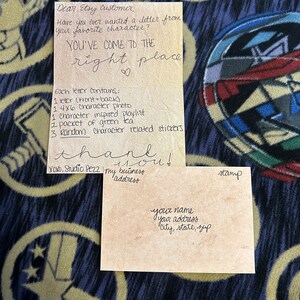 Dear Etsy Customer,
Have you ever wanted a letter from
your favorite character?
YOU'VE COME TO THE
right place
Each letter contains:
1 letter (front + back)
1 4x6 character photo
1 character inspired playlist
1 packet of green tea
3 random character related stickers
thank
you!
my business
address
stamp
your name
your address
city, state, zip